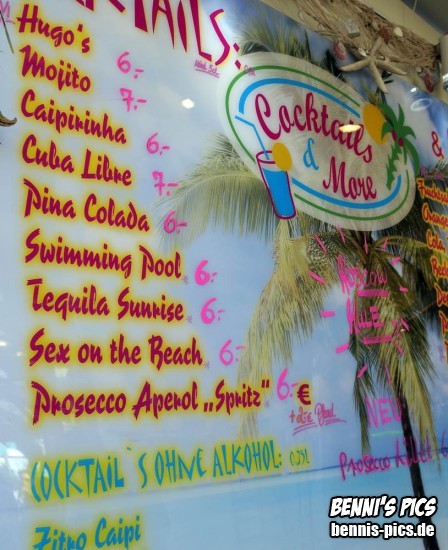 COCKTAILS:
Hugo's 6.-
Mojito 7.-
Caipirinha 6.-
Cuba Libre 7.-
Pina Colada 6.-
Swimming Pool 6.-
Tequila Sunrise 6.-
Sex on the Beach 6.-
Prosecco Aperol „Spritz" 6.- €
COCKTAIL`S OHNE ALKOHOL: 0,25l
Zitro Caipi
Cocktails
&
More
NEU
Prosecco
BENNI'S PICS
bennis-pics.de